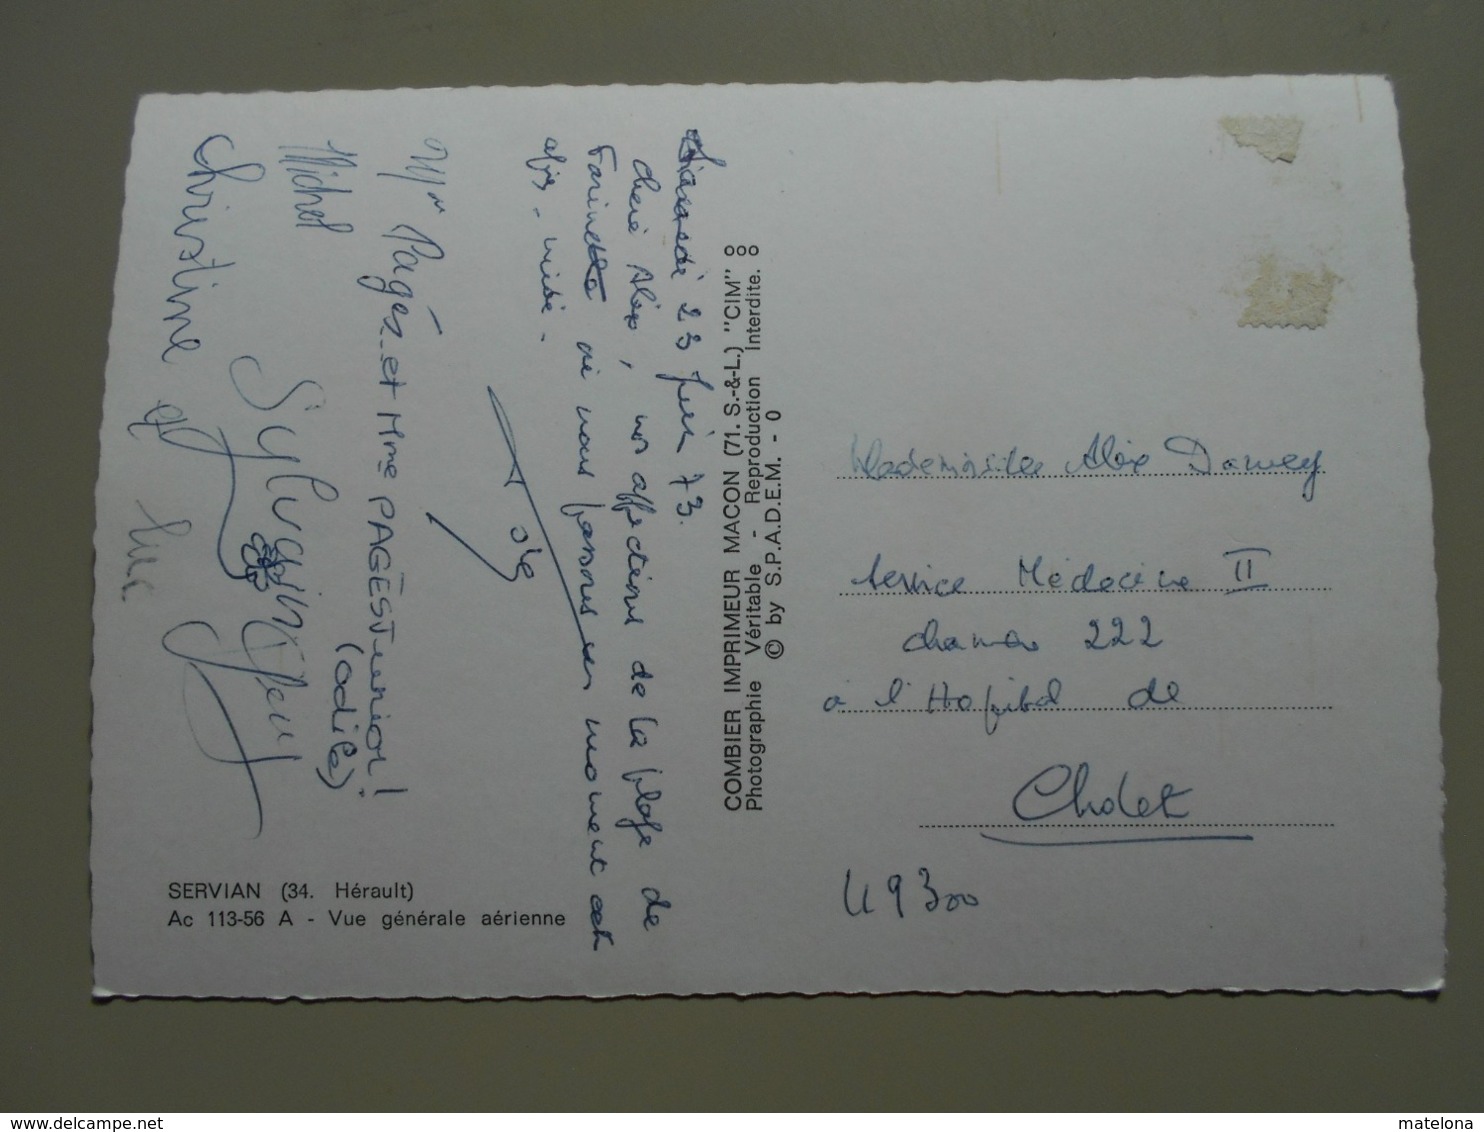 23 juin 73.
chère Alex, nos affections de la plage de
Farinette où nous passons un moment cet
après-midi.
Mr Pagès et Mme PAGÈS Junior!
(Odile)
Michel
Sylvain
Christine
Luc
SERVIAN (34. Hérault)
Ac 113-56 A - Vue générale aérienne
COMBIER IMPRIMEUR MACON (71. S.-&-L.) "CIM"
Photographie Véritable - Reproduction Interdite.
© by S.P.A.D.E.M. - 0
Mademoiselle Alex
Service Médecine II
chambre 222
à l'Hôpital de
Cholet
49300
www.delcampe.net
matelona